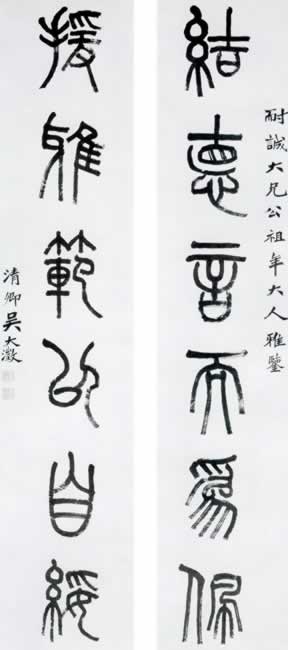 耐誠大兄公祖年大人雅鑒
結悳言而爲佩
援雅範以自綏
清卿吴大澂